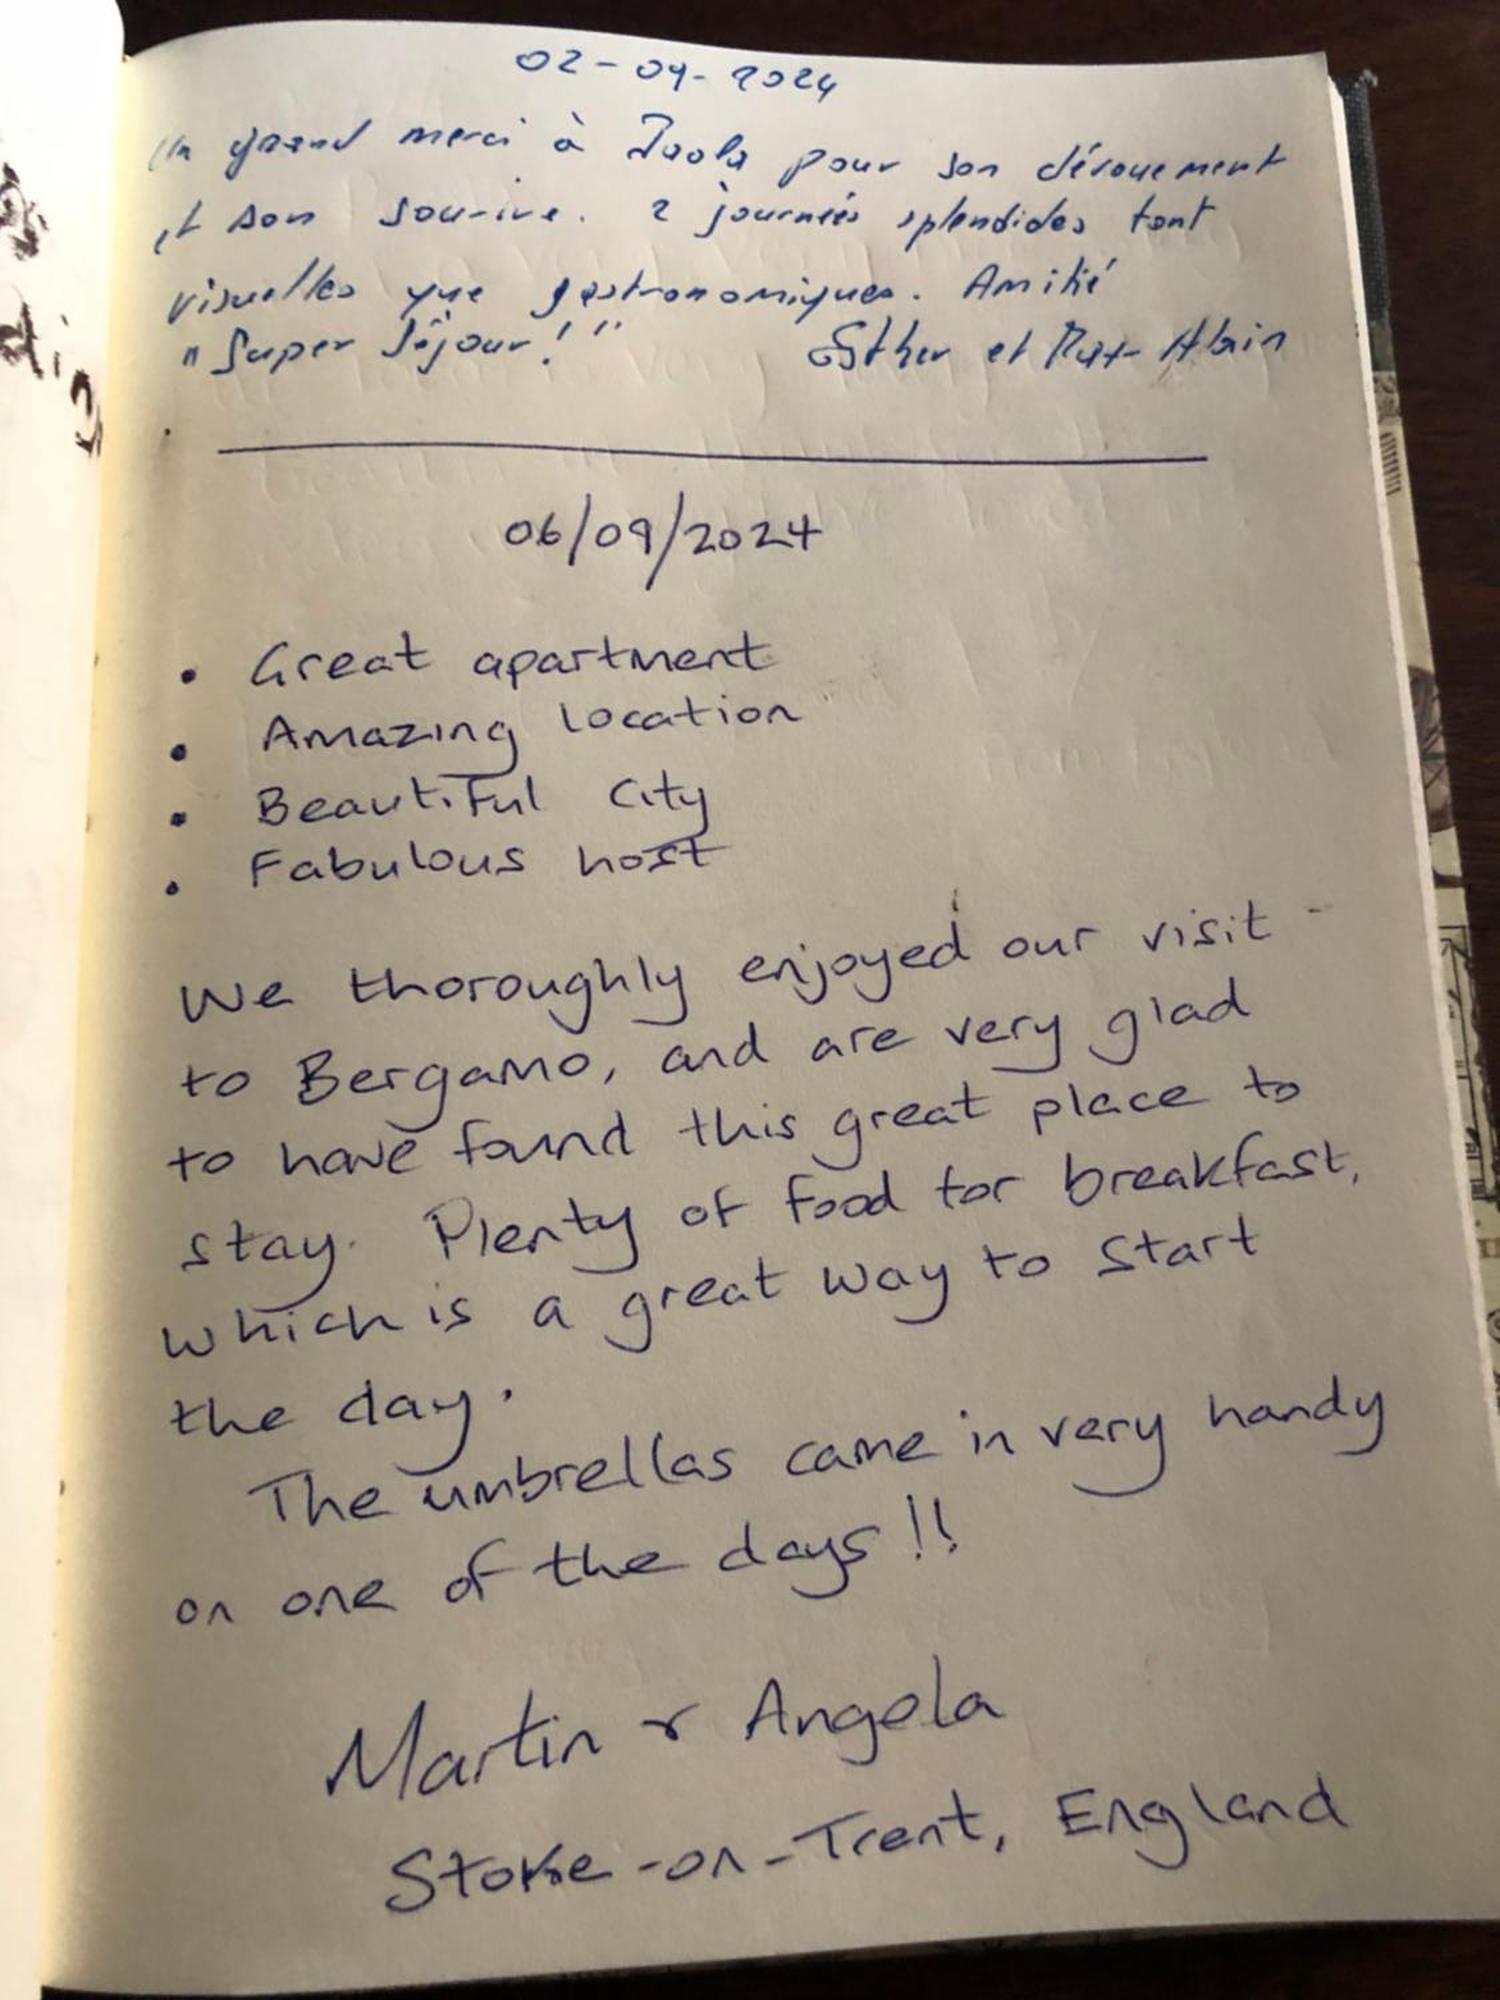 02-09-2024
Un grand merci à Paola pour son dévouement
et son sourire. 2 journées splendides tant
visuelles que gastronomiques. Amitié
"Super Séjour!" Esther et Alain
06/09/2024
• Great apartment
• Amazing location
• Beautiful city
• Fabulous host
We thoroughly enjoyed our visit
to Bergamo, and are very glad
to have found this great place to
stay. Plenty of food for breakfast,
which is a great way to start
the day.
The umbrellas came in very handy
on one of the days!!
Martin & Angela
Stoke-on-Trent, England